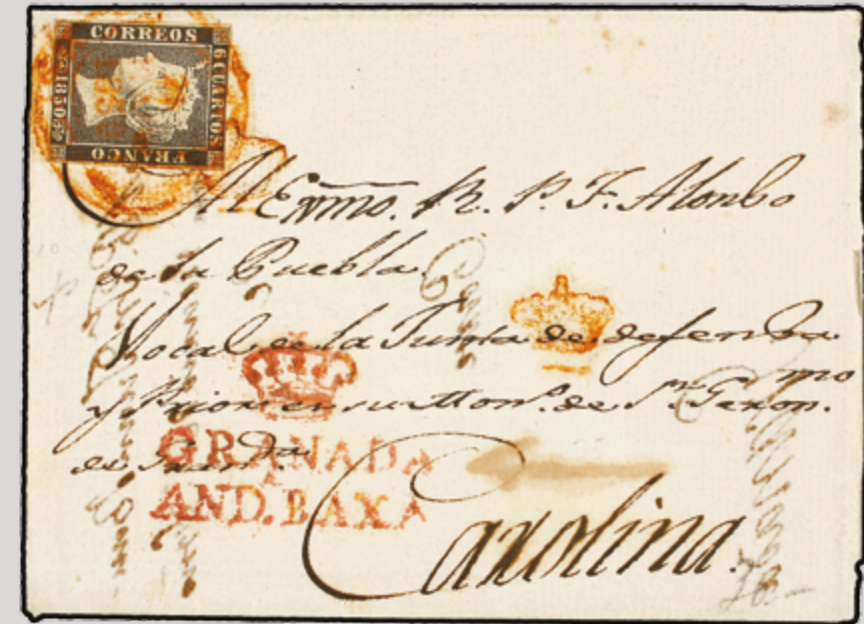 CORREOS
6 CUARTOS
FRANCO
1850
Al Exmo. R. P. F. Alonso
de la Puebla
Vocal de la Junta de defensa
y Prior en su Monº. de Sn. Geron.mo
de Gran.da
GRANADA
AND.BAXA
Carolina.